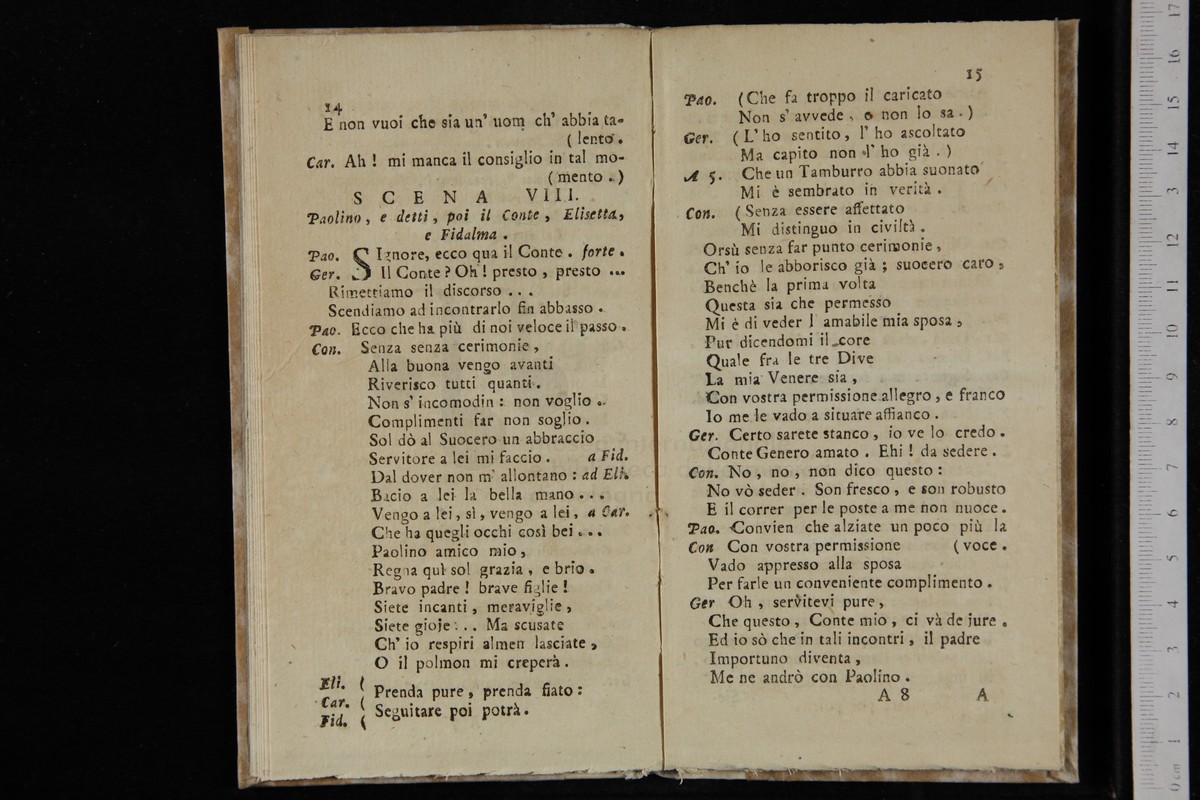 14
E non vuoi che sia un' uom ch' abbia ta-
( lento.
Car. Ah ! mi manca il consiglio in tal mo-
( mento . )
SCENA VIII.
Paolino, e detti, poi il Conte, Elisetta,
e Fidalma .
Pao. SIgnore, ecco qua il Conte . forte .
Ger. Il Conte ? Oh ! presto , presto ...
Rimettiamo il discorso . . .
Scendiamo ad incontrarlo fin abbasso .
Pao. Ecco che ha più di noi veloce il passo .
Con. Senza senza cerimonie ,
Alla buona vengo avanti
Riverisco tutti quanti .
Non s' incomodin : non voglio .
Complimenti far non soglio .
Sol dò al Suocero un abbraccio
Servitore a lei mi faccio . a Fid.
Dal dover non m' allontano : ad Eli.
Bacio a lei la bella mano . . .
Vengo a lei , sì , vengo a lei , a Car.
Che ha quegli occhi così bei . . .
Paolino amico mio ,
Regna quì sol grazia , e brio .
Bravo padre ! brave figlie !
Siete incanti , meraviglie ,
Siete gioje . . . Ma scusate
Ch' io respiri almen lasciate ,
O il polmon mi creperà .
Eli. (
Prenda pure , prenda fiato :
Car. (
Seguitare poi potrà .
Fid. (
15
Pao. (Che fa troppo il caricato
Non s' avvede , o non lo sa . )
Ger. ( L' ho sentito , l' ho ascoltato
Ma capito non l' ho già . )
A 5. Che un Tamburro abbia suonato
Mi è sembrato in verità .
Con. ( Senza essere affettato
Mi distinguo in civiltà .
Orsù senza far punto cerimonie ,
Ch' io le abborisco già ; suocero caro ,
Benchè la prima volta
Questa sia che permesso
Mi è di veder l amabile mia sposa ,
Pur dicendomi il core
Quale fra le tre Dive
La mia Venere sia ,
Con vostra permissione allegro , e franco
Io me le vado a situare affianco .
Ger. Certo sarete stanco , io ve lo credo .
Conte Genero amato . Ehi ! da sedere .
Con. No , no , non dico questo :
No vò seder . Son fresco , e son robusto
E il correr per le poste a me non nuoce .
Pao. Convien che alziate un poco più la
Con Con vostra permissione ( voce .
Vado appresso alla sposa
Per farle un conveniente complimento .
Ger Oh , servitevi pure ,
Che questo , Conte mio , ci và de jure .
Ed io sò che in tali incontri , il padre
Importuno diventa ,
Me ne andrò con Paolino .
A 8 A